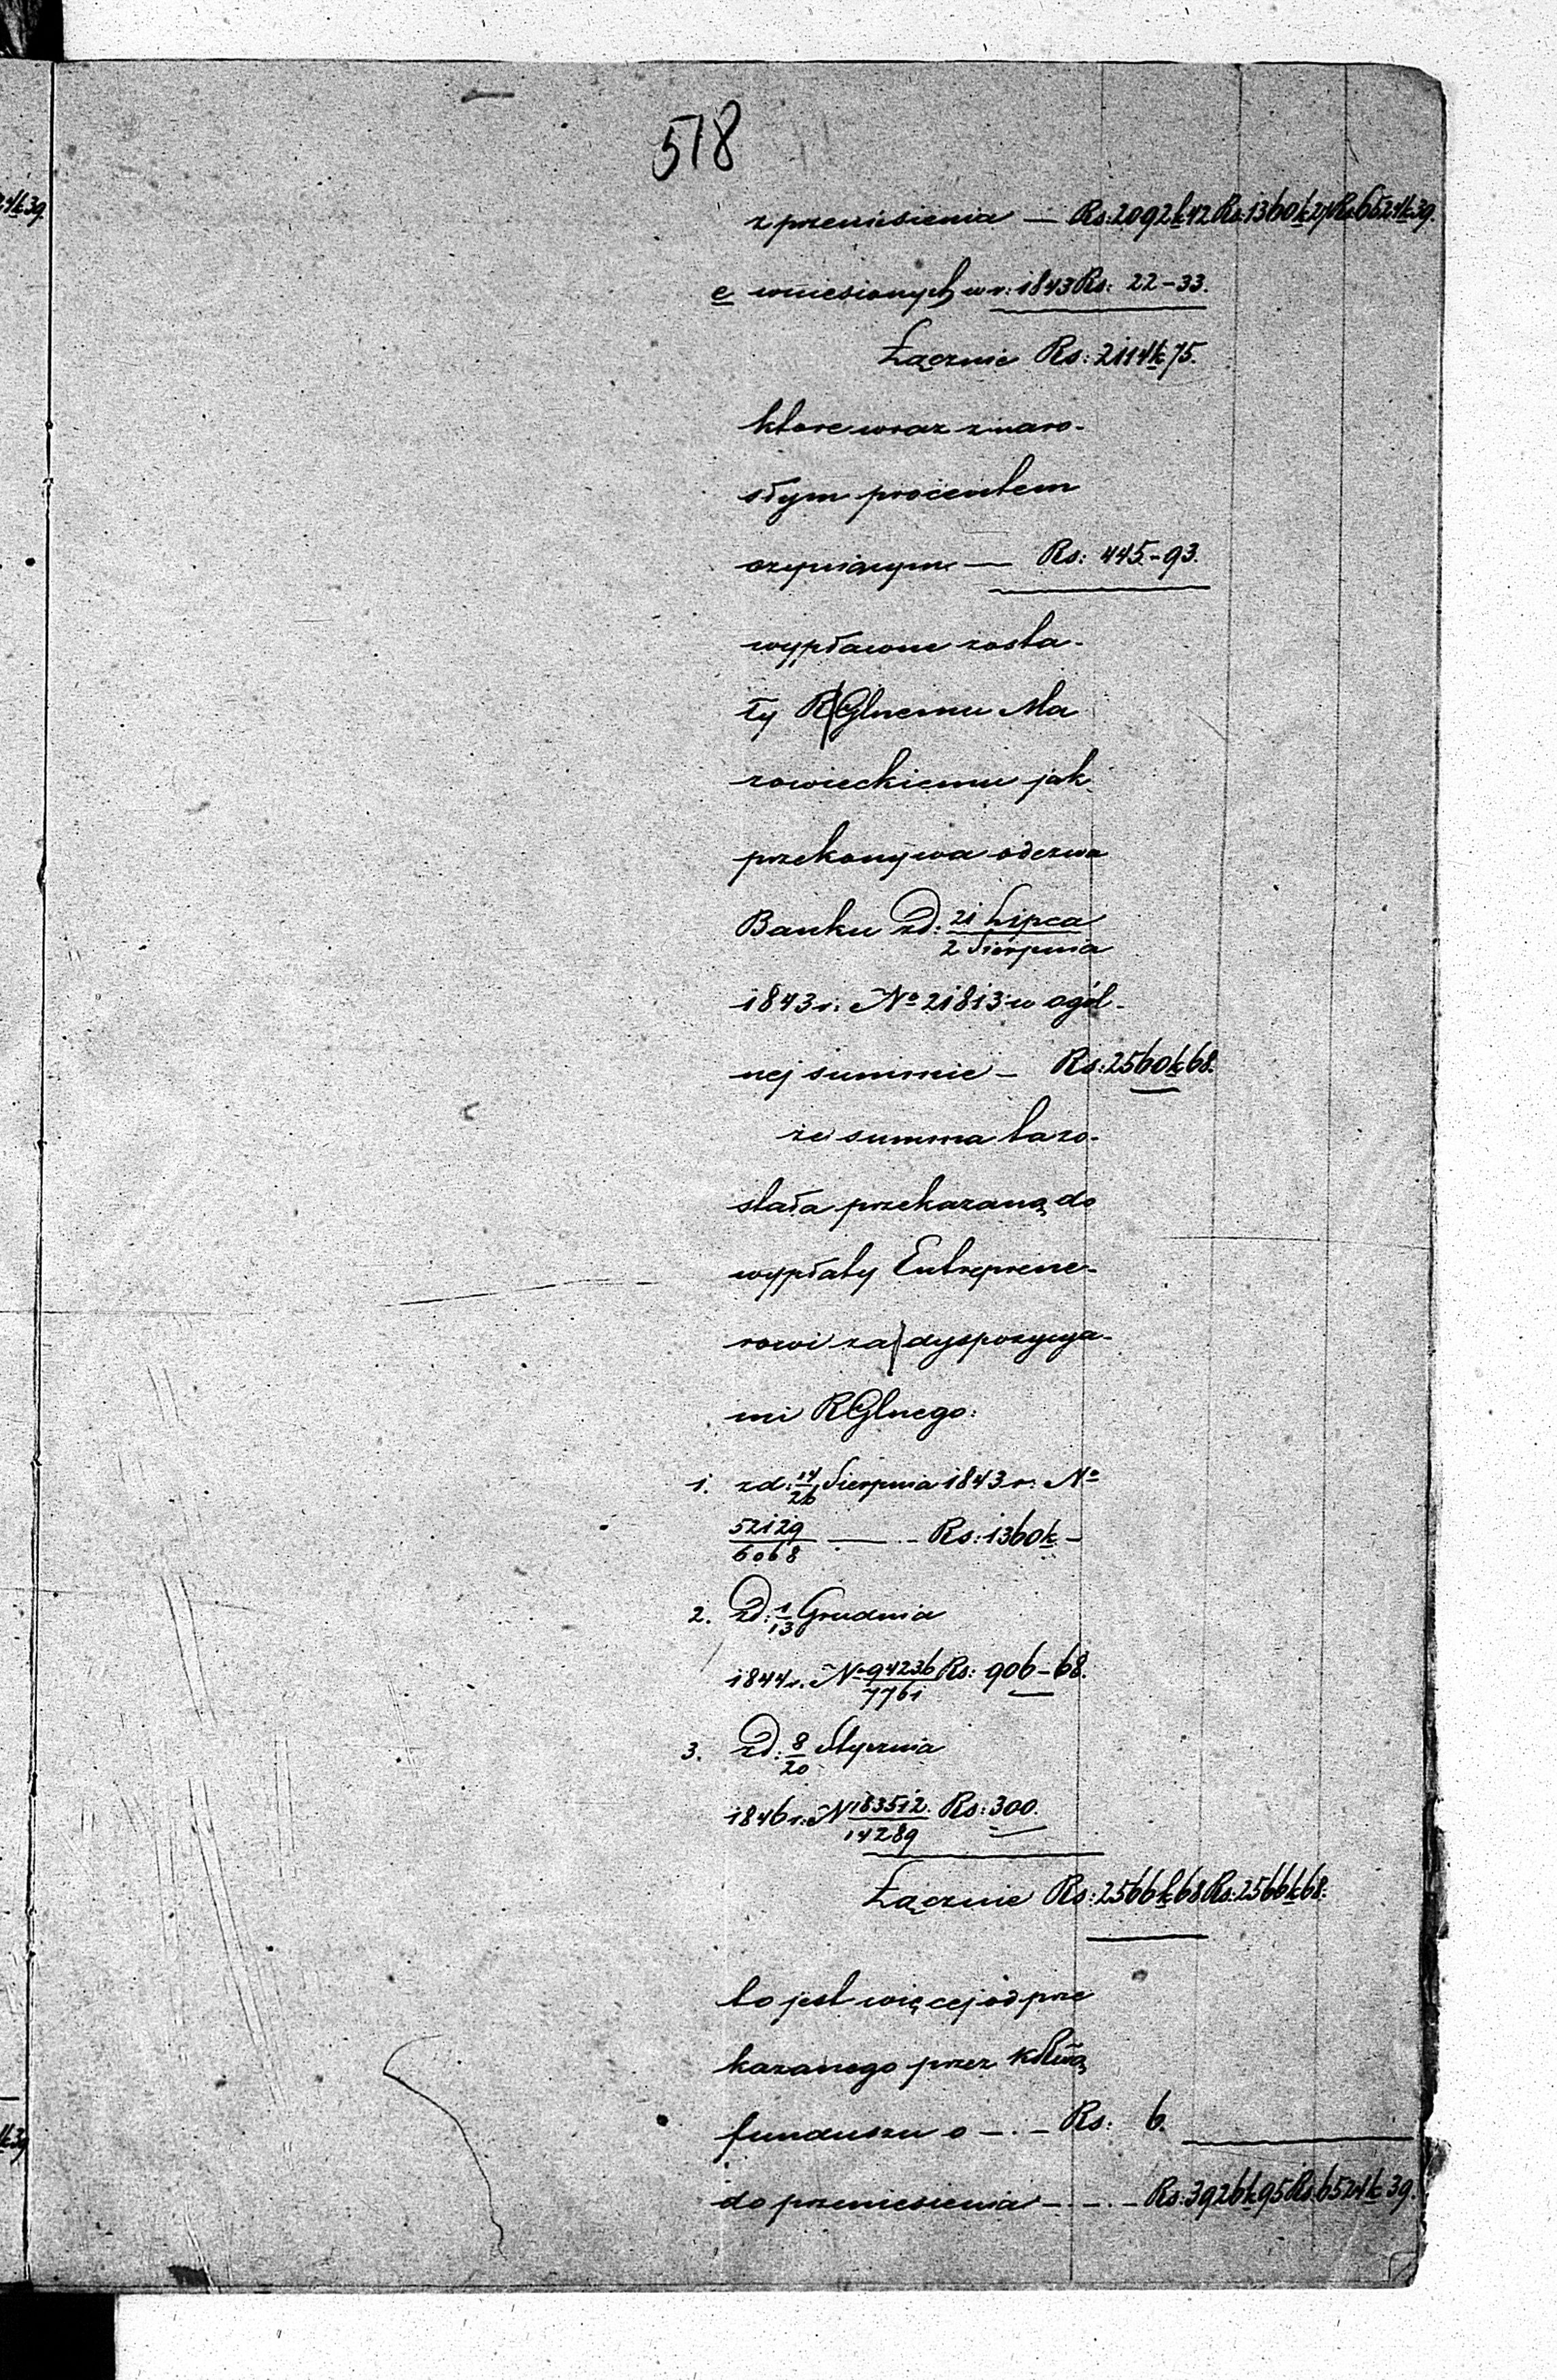 24k39
518
z przeniesienia — Rs: 2092k42 Rs: 1360k27 Rs: 6524k39.
e wniesionych w r: 1843 Rs: 22-33.
Łącznie Rs: 2114k75.
które wraz z naro-
słym procentem
czyniącym — Rs: 445-93.
wypłacone zosta-
ły RGlnemu Ma
zowieckiemu jak
przekonywa odezwa
Banku zd: 21 Lipca / 2 Sierpnia
1843 r: No 21813 w ogól-
nej summie — Rs: 2560k68.
że summa ta zo-
stała przekazaną do
wypłaty Entreprene-
rowi za dyspozycya-
mi RGlnego:
1. zd: 14/26 Sierpnia 1843 r: No
52129/6068 — Rs: 1360k-
2. zd: 1/13 Grudnia
1844 r. No 94236/7761 Rs: 906-68.
3. zd: 8/20 Stycznia
1846 r: N 183512/14289 Rs: 300.
Łącznie Rs: 2566k68 Rs: 2566k68.
to jest więcej od prze
kazanego przez
funduszu o — . — Rs: 6.
do przeniesienia — . — . — Rs: 3926k95 Rs: 6524k39.